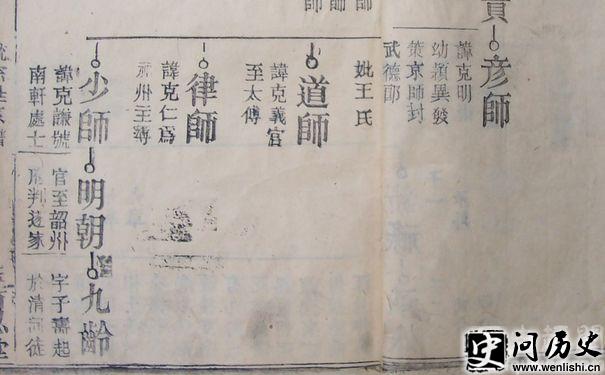 彦師
諱克明
幼穎異發
策京師封
武德郎
師
師
師
妣王氏
道師
諱克義官
至太傅
律師
諱克仁爲
州主簿
少師
諱克謙號
南軒處士
明朝
官至韶州
判遂家
九齡
字子壽起
於清河徙
史问历史
www.wenlishi.cn